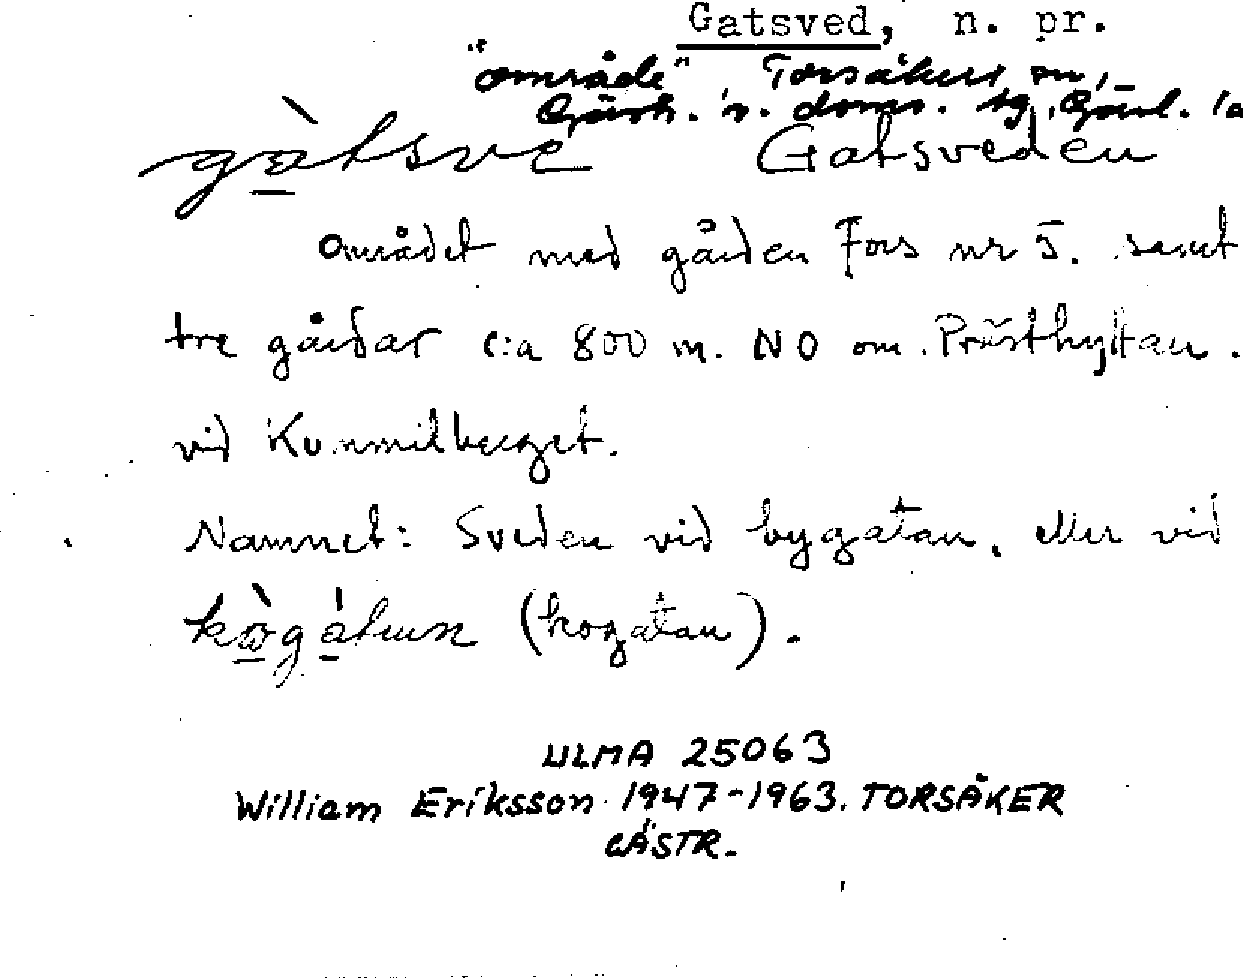 Gatsved, n. pr.
"område" Torsåkers sn,
Gästr. ö. doms. tg, Gävl. lä
gàtsve Gatsveden
Området med gården Fors nr 5. samt
tre gårdar c:a 800 m. NO om. Prästhyttan.
vid Kummilberget.
Namnet: Sveden vid bygatan, eller vid
kògátun (kogatan).
ULMA 25063
William Eriksson 1947-1963. TORSÅKER
GÄSTR.